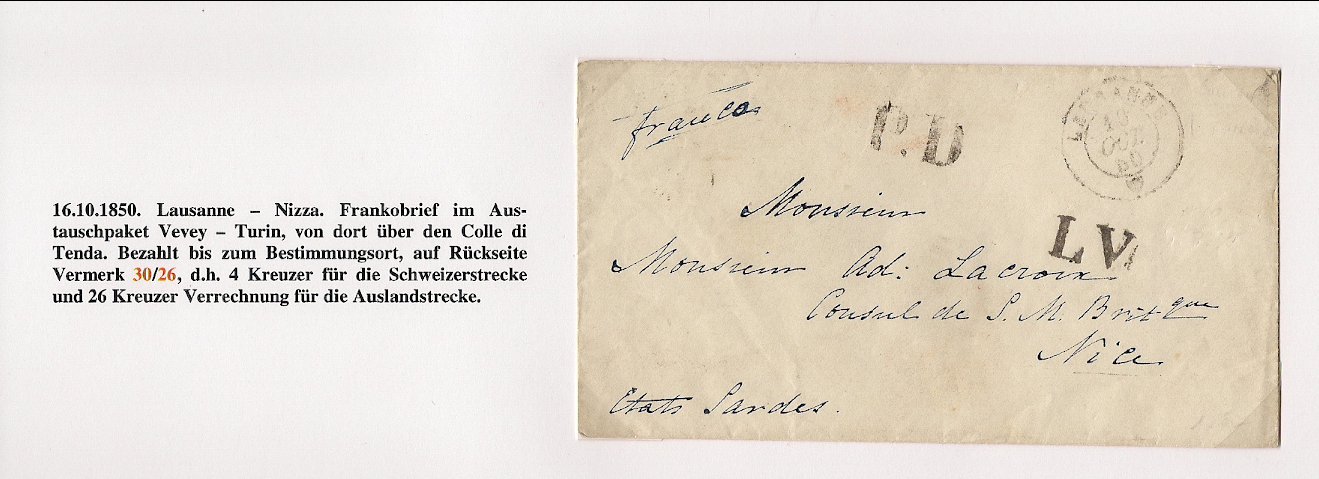 16.10.1850. Lausanne – Nizza. Frankobrief im Aus-
tauschpaket Vevey – Turin, von dort über den Colle di
Tenda. Bezahlt bis zum Bestimmungsort, auf Rückseite
Vermerk 30/26, d.h. 4 Kreuzer für die Schweizerstrecke
und 26 Kreuzer Verrechnung für die Auslandstrecke.
franco
P.D
LAUSANNE
OCT
50
Monsieur
L V.
Monsieur Ad: Lacroix
Consul de S. M. Britque
Nice
Etats Sardes.